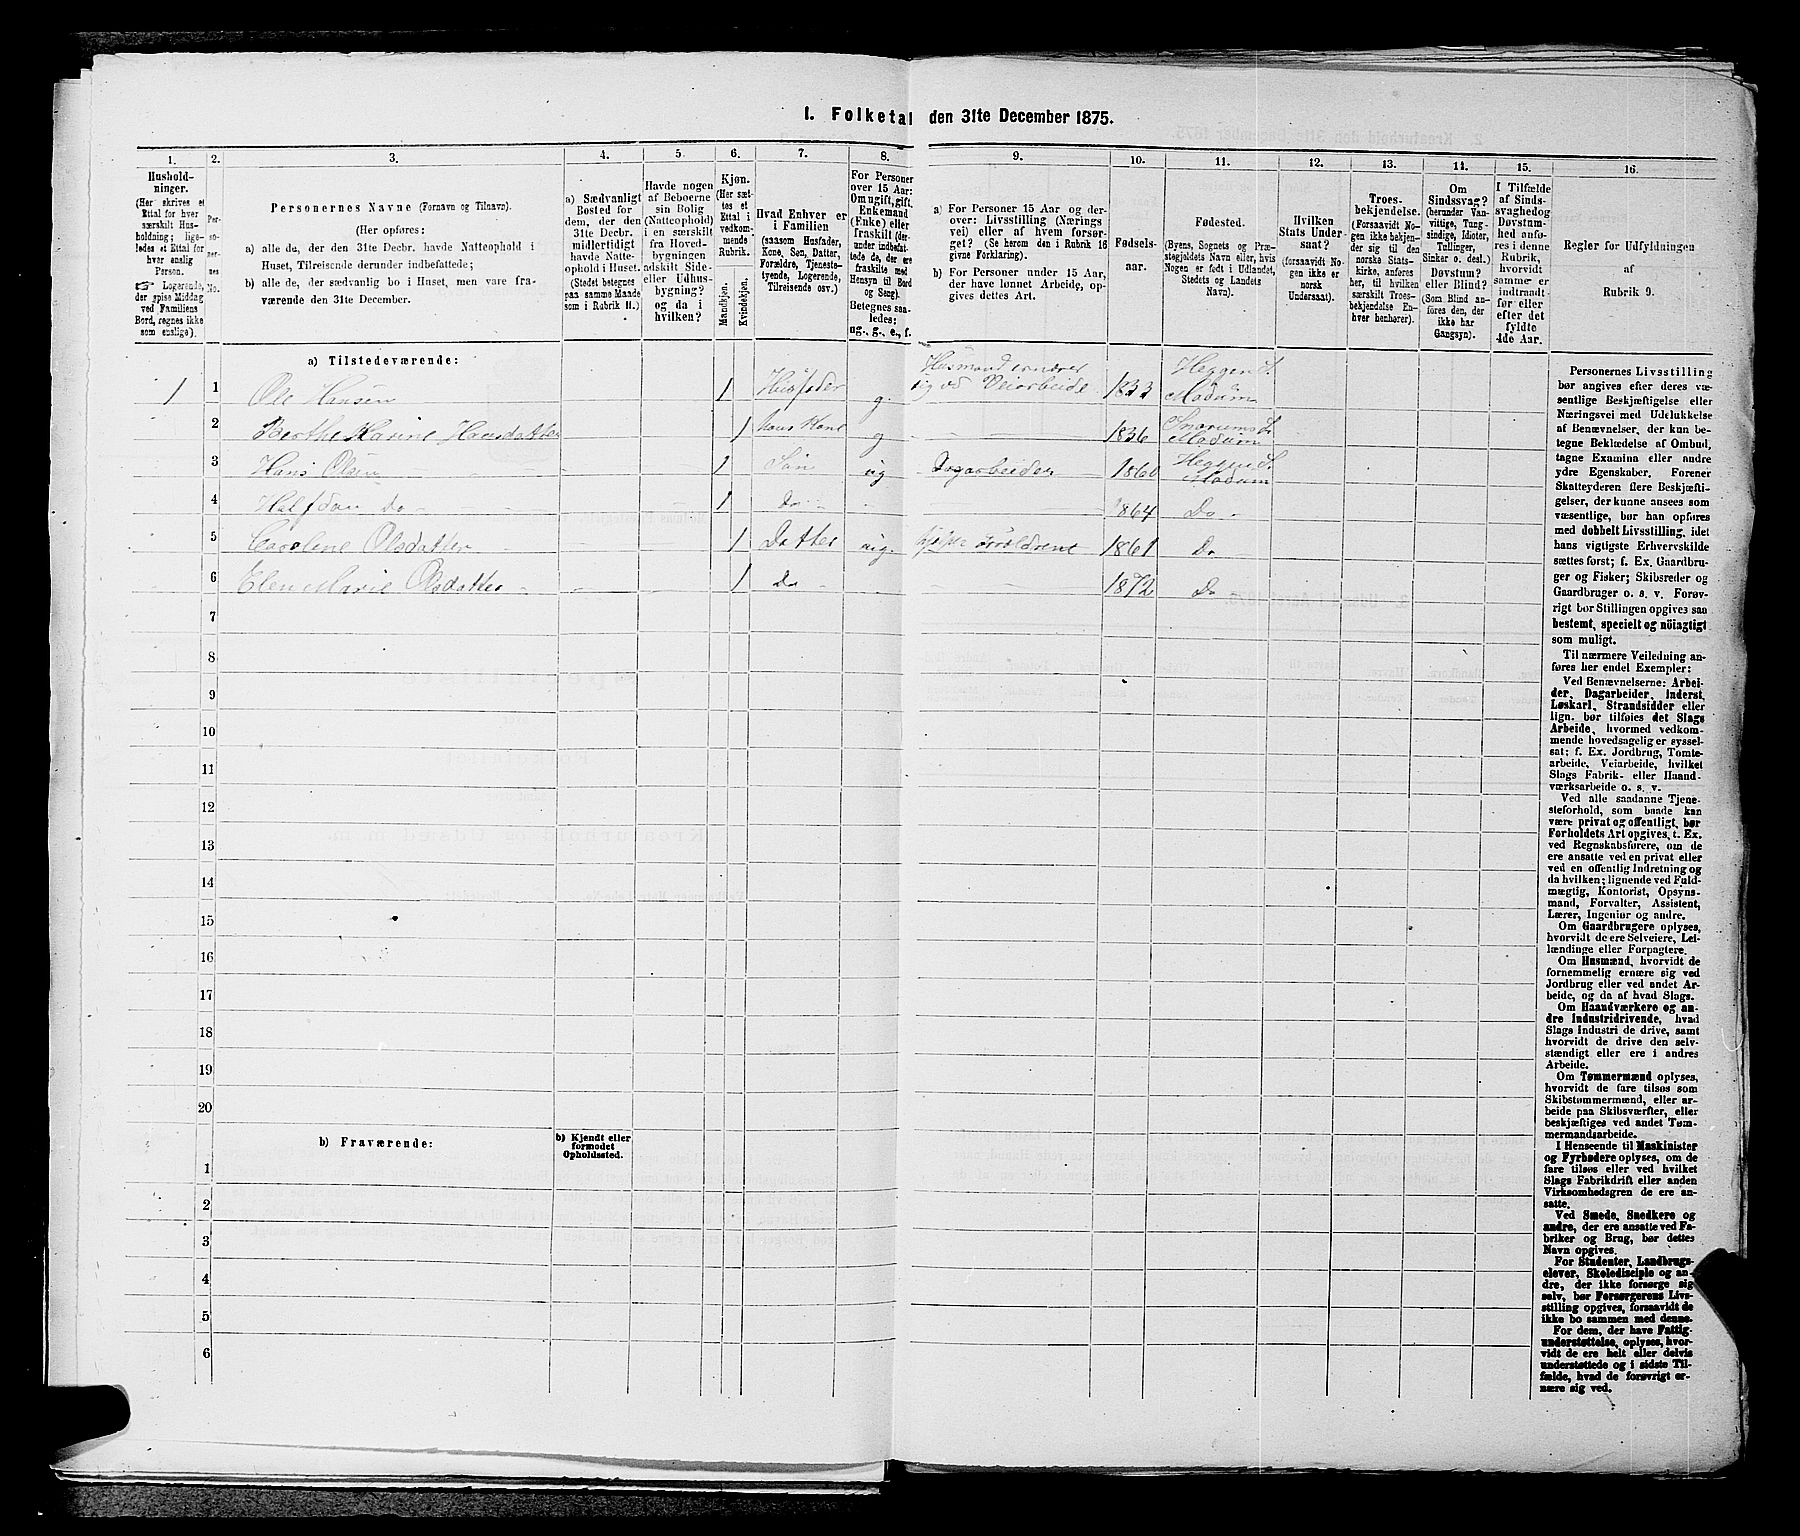 1. Folketal den 31te December 1875.
1. 2. 3. 4. 5. 6. 7. 8. 9. 10. 11. 12. 13. 14. 15. 16.
Hushold-
ninger.
(Her skrives et
Ettal for hver
særskilt Hus-
holdning; lige-
ledes et Ettal for
hver enslig
Person.
☞ Logerende,
der spise Middag
ved Familiens
Bord, regnes ikke
som enslige).
Per-
so-
ner-
nes
No.
Personernes Navne (Fornavn og Tilnavn).
(Her opføres:
a) alle de, der den 31te Decbr. havde Natteophold i
Huset, Tilreisende derunder indbefattede;
b) alle de, der sædvanlig bo i Huset, men vare fra-
værende den 31te December.
a) Sædvanligt
Bosted for
dem, der den
31te Decbr.
midlertidigt
havde Natte-
ophold i Huset.
(Stedet betegnes
paa samme Maade
som i Rubrik 11.)
Havde nogen
af Beboerne
sin Bolig
(Natteophold)
i en særskilt
fra Hoved-
bygningen
adskilt Side-
eller Udhus-
bygning?
og da i
hvilken?
Kjøn.
(Her sæt-
tes et
Ettal i
vedkom-
mende
Rubrik.
Mandkjøn.
Kvindekjøn.
Hvad Enhver er
i Familien
(saasom Husfader,
Kone, Søn, Datter,
Forældre, Tjeneste-
tyende, Logerende,
Tilreisende osv.)
For Personer
over 15 Aar:
Om ugift, gift,
Enkemand
(Enke) eller
fraskilt (der-
under indbefat-
tede de, der ere
fraskilte med
Hensyn til Bord
og Seng).
Betegnes saa-
ledes:
ug., g., e., f.
a) For Personer 15 Aar og der-
over: Livsstilling (Nærings
vei) eller af hvem forsør-
get? (Se herom den i Rubrik 16
givne Forklaring).
b) For Personer under 15 Aar,
der have lønnet Arbeide, op-
gives dettes Art.
Fødsels-
aar.
Fødested.
(Byens, Sognets og Præ-
stegjeldets Navn eller, hvis
Nogen er født i Udlandet,
Stedets og Landets
Navn).
Hvilken
Stats Under-
saat?
(forsaavidt No-
gen ikke er
norsk
Undersaat).
Troes-
bekjendelse.
(Forsaavidt No-
gen ikke bekjen-
der sig til den
norske Stats-
kirke, anføres
her, til hvilken
særskilt Troes-
bekjendelse En-
hver henhører).
Om
Sindssvag?
(herunder Van-
vittige, Tung-
sindige, Idioter,
Tullinger,
Sinker o. desl.)
Døvstum?
eller Blind?
(Som Blind an-
føres den, der
ikke har
Gangsyn).
I Tilfælde
af Sinds-
svaghed og
Døvstum-
hed anfø-
res i denne
Rubrik,
hvorvidt
samme er
indtraadt
før eller
efter det
fyldte
4de Aar.
Regler for Udfyldningen
af
Rubrik 9.
a) Tilstedeværende:
1 1 Ole Hansen 1 Husfader g. Husmand ernærer sig ved Veiarbeide 1833 Heggen S. Modum
2 Berthe Karine Hansdatter 1 hans Kone g 1836 Snarums S. Modum
3 Hans Olsen 1 Søn ug Dagarbeider 1860 Heggen S. Modum
4 Halfdan Do 1 Do 1864 Do
5 Caroline Olsdatter 1 Datter ug. 1861 Do
6 Elen Marie Olsdatter 1 Do 1872 Do
7
8
9
10
11
12
13
14
15
16
17
18
19
20
b) Fraværende:
b) Kjendt eller
formodet
Opholdssted.
1
2
3
4
5
6
Personernes Livsstilling
bør angives efter deres væ-
sentlige Beskjæftigelse eller
Næringsvei med Udelukkelse
af Benævnelser, der kun be-
tegne Beklædelse af Ombud,
tagne Examina eller andre
ydre Egenskaber. Forener
Skatteyderen flere Beskjæfti-
gelser, der kunne ansees som
væsentlige, bør han opføres
med dobbelt Livsstilling, idet
hans vigtigste Erhvervskilde
sættes først; f. Ex. Gaardbru-
ger og Fisker; Skibsreder og
Gaardbruger o. s. v. Forøv-
rigt bør Stillingen opgives saa
bestemt, specielt og nöiagtigt
som muligt.
Til nærmere Veiledning an-
føres her endel Exempler:
Ved Benævnelserne: Arbei-
der, Dagarbeider, Inderst,
Løskarl, Strandsidder eller
lign. bør tilføies det Slags
Arbeide, hvormed vedkom-
mende hovedsagelig er syssel-
sat; f. Ex. Jordbrug, Tomte-
arbeide, Veiarbeide, hvilket
Slags Fabrik- eller Haand-
værksarbeide o. s. v.
Ved alle saadanne Tjene-
steforhold, som baade kan
være privat og offentligt, bør
Forholdets Art opgives, t. Ex.
ved Regnskabsførere, om de
ere ansatte ved en privat eller
ved en offentlig Indretning og
da hvilken; lignende ved Fuld-
mægtig, Kontorist, Opsyns-
mand, Forvalter, Assistent,
Lærer, Ingeniør og andre.
Om Gaardbrugere oplyses,
hvorvidt de ere Selveiere, Lei-
lændinge eller Forpagtere.
Om Husmænd, hvorvidt de
fornemmelig ernære sig ved
Jordbrug eller ved andet Ar-
beide, og da af hvad Slags.
Om Haandværkere og an-
dre Industridrivende, hvad
Slags Industri de drive, samt
hvorvidt de drive den selv-
stændigt eller ere i andres
Arbeide.
Om Tømmermænd oplyses,
hvorvidt de fare tilsøs som
Skibstømmermænd, eller ar-
beide paa Skibsværfter, eller
beskjæftiges ved andet Tøm-
mermandsarbeide.
I Henseende til Maskinister
og Fyrbødere oplyses, om de
fare tilsøs eller ved hvilket
Slags Fabrikdrift eller anden
Virksomhedsgren de ere an-
satte.
Ved Smede, Snedkere og
andre, der ere ansatte ved Fa-
briker og Brug, bør dettes
Navn opgives.
For Studenter, Landbrugs-
elever, Skoledisciple og an-
dre, der ikke forsørge sig
selv, bør Forsørgerens Livs-
stilling opgives, forsaavidt de
ikke bo sammen med denne.
For dem, der have Fattig-
understøttelse, oplyses, hvor-
vidt de ere helt eller delvis
understøttede og i sidste Til-
fælde, hvad de forøvrigt er-
nære sig ved.